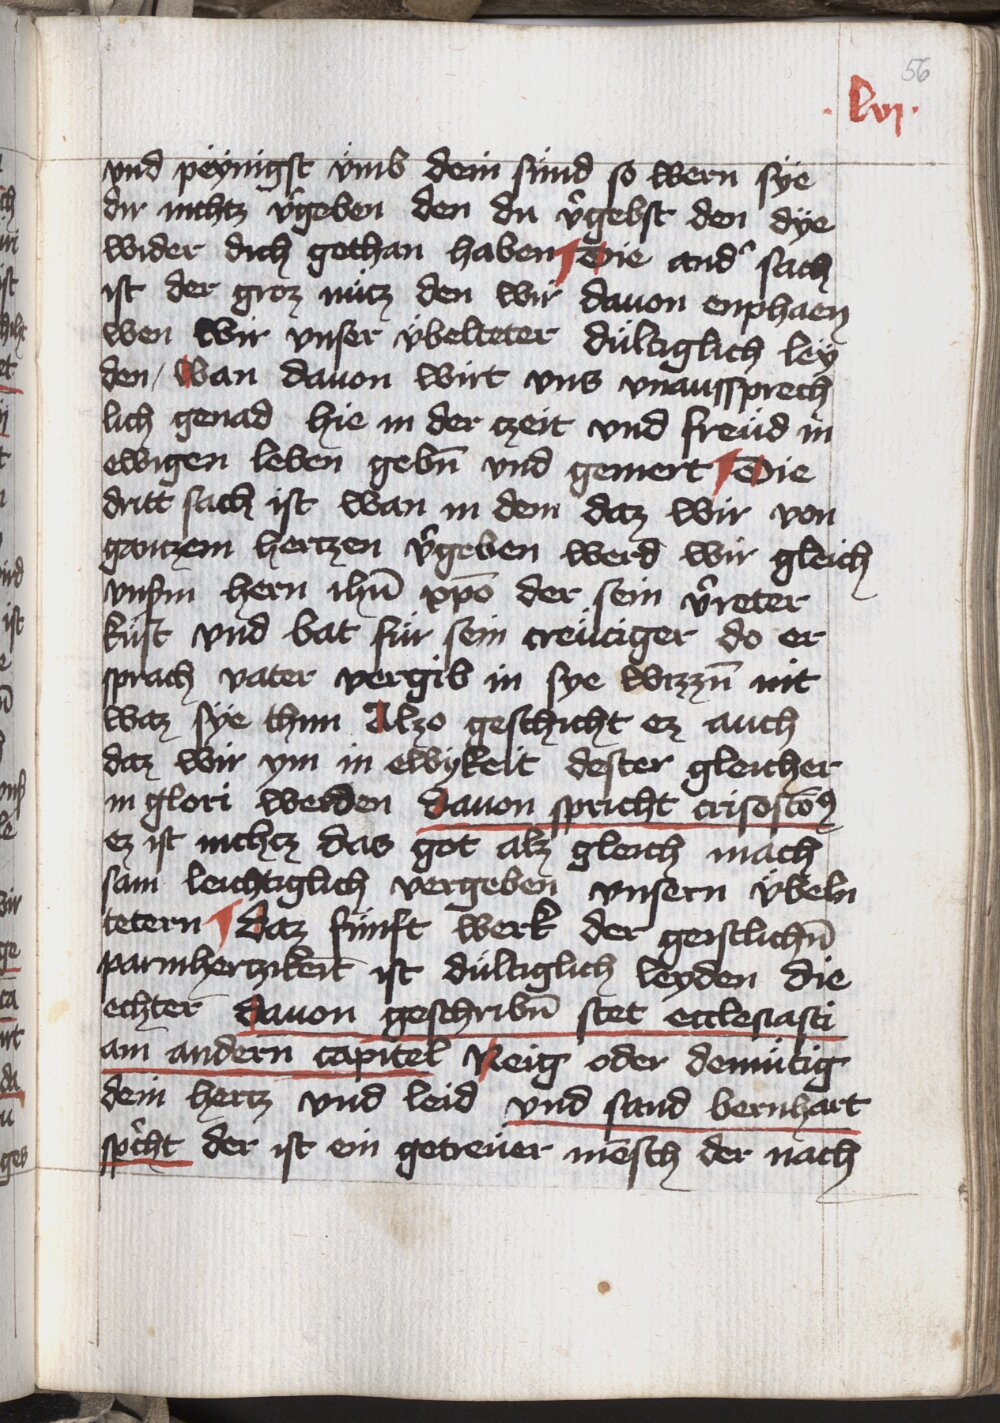 56
· lvj ·
vnd peynigst vmb dein sünd so wern sye
dir nichtz v̂geben den du v̂gebst den dye
wider dich gethan haben ¶ Die and̂ sach
ist der groz nütz den wir dauon enphaen
wen wir vnser übelteter dültiglich ley
den / Wan dauon wirt vns vnaussprech
lich genad hie in der tzeit vnd freüd in
ewigen leben gebn̄ vnd gemert ¶ Die
dritt sach ist wan in dem daz wir von
gantzem hertzen v̂geben werd wir gleich
vnsm hern ihū xp̄o der sein v̂reter
küst vnd bat für sein creütziger do er
sprach vater vergib in sye wizzn̄ nit
waz sye thun Alzo geschicht ez auch
daz wir ym in ewykeit dester gleicher
in glori werden dauon spricht crisostōꝰ
ez ist nichtz das got alz gleich mach
sam leichtiglich vergeben vnsern übeln
tetern ¶ Daz fünft werk der geistlichn̄
parmhertzikeit ist dültiglich leyden die
echter dauon geschribn̄ stet ecclesiasti
am andern capitel Neig oder demütig
dein hertz vnd leid vnd sand bernhart
sp̂cht der ist ein getreuer mēsch der nach